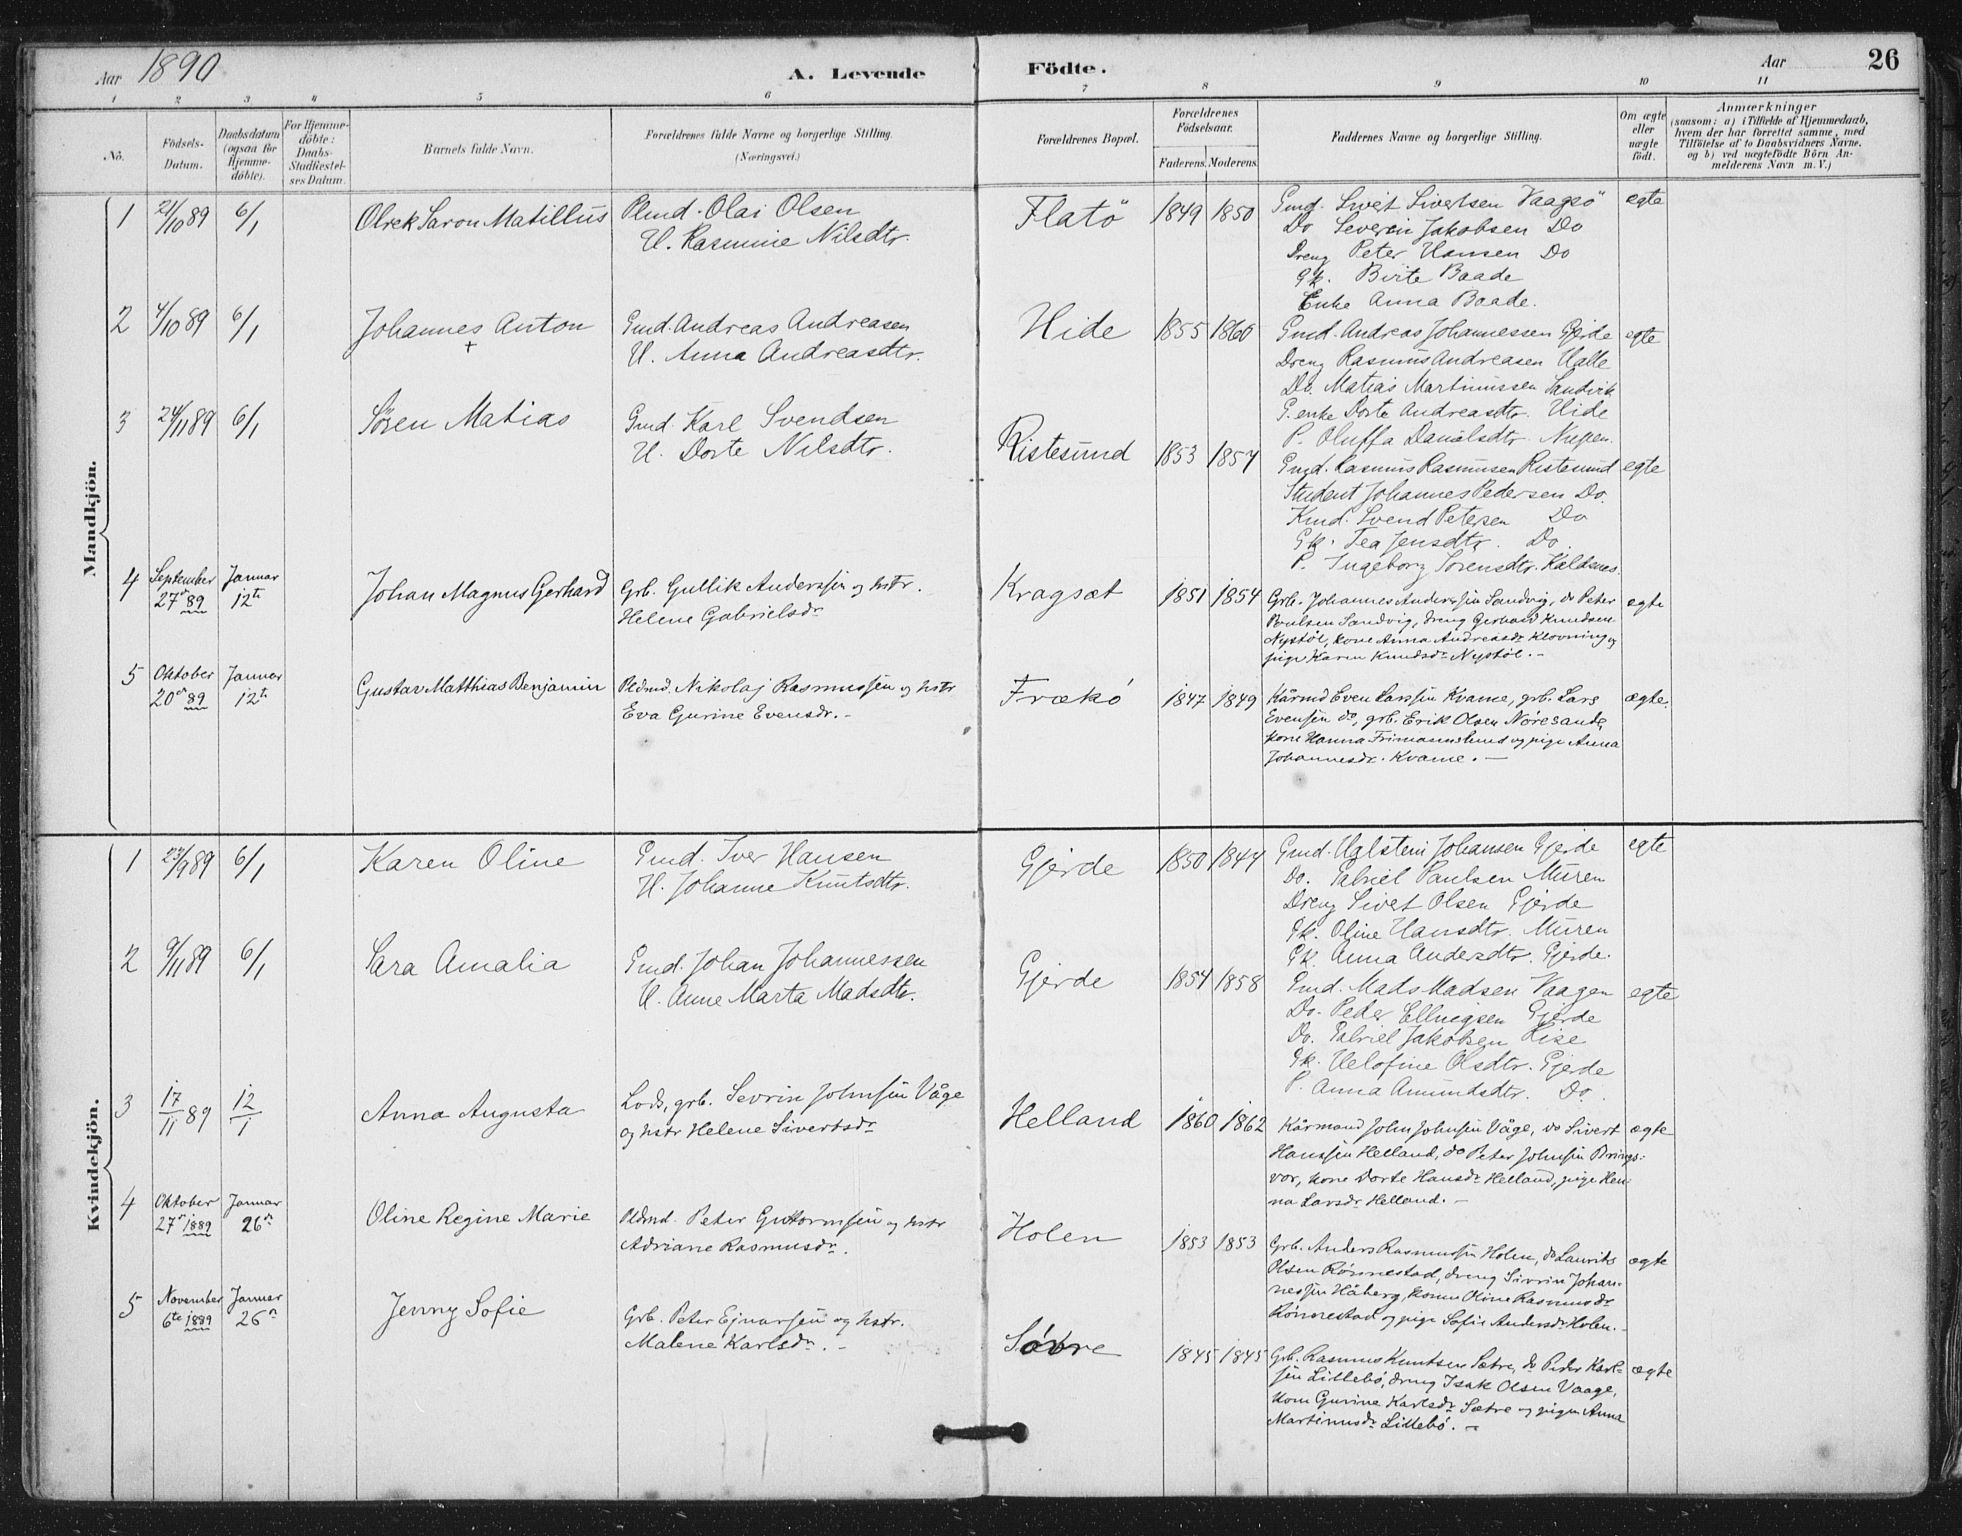 Aar 1890 A. Levende Födte. Aar 26
1 2 3 4 5 6 7 8 9 10 11
No. Födsels-Datum. Daabsdatum (ogsaa for Hjemmedöbte). For Hjemmedöbte: Daabs-Stadfæstelses Datum. Barnets fulde Navn. Forældrenes fulde Navne og borgerlige Stilling. (Næringsvei.) Forældrenes Bopæl. Forældrenes Födselsaar. Faderens. Moderens. Faddernes Navne og borgerlige Stilling. Om ægte eller uægte födt. Anmærkninger (saasom: a) i Tilfælde af Hjemmedaab, hvem der har forrettet samme, med Tilföielse af to Daabsvidners Navne, og b) ved uægtefödte Börn Anmelderens Navn m. V.)
Mandkjön.
1 21/10 89 6/1 Olrek Saron Matillus Plmd. Olai Olsen Flatö 1849 1850 Gmd. Sivert Sivertsen Vaagsö egte
H. Rasmine Nilsdtr. Do Severin Jakobsen Do
Dreng Peter Hansen Do
Gk. Birte Baade
Enke Anna Baade.
2 4/10 89 6/1 Johannes Anton Gmd. Andreas Andreasen Hide 1855 1860 Gmd. Andreas Johannessen Gjerde egte
+ H. Anna Andreasdtr. Dreng Rasmus Andreasen Halle
Do. Matias Martinussen Sandvik
G. enke Dorte Andreasdtr. Hide
P. Oluffa Danielsdtr. Nupen.
3 24/11 89 6/1 Sören Matias Gmd. Karl Svendsen Ristesund 1853 1857 Gmd. Rasmus Rasmusen Ristesund egte
H. Dorte Nilsdtr. Student Johannes Pedersen Do.
Kmd. Svend Petersen Do
Gk. Tea Jensdtr. Do.
P. Ingeborg Sörensdtr. Kaldnes.
4 September 27de 89 Januar 12te Johan Magnus Gerhard Grb. Gullik Anderssen og hstr. Kragsæt 1851 1854 Grb. Johannes Anderssen Sandvig, do Peter egte
Helene Gabrielsdr Poulsen Sandvig, dreng Gerhard Knudsen
Nystöl, kone Anna Andreasdr Klovning og
pige Karen Knudsdr Nystöl. –
5 Oktober 20de 89 Januar 12te Gustav Matthias Benjamin Pldmd. Nikolaj Rasmussen og hstr Frækö 1847 1849 Kårmd Even Larssen Kvame, grb. Lars ægte.
Eva Gurine Evensdr. – Evensen do, grb. Erik Olsen Nöresande,
kone Hanna Frimannslund og pige Anna
Johannesdr. Kvame. –
Kvindekjön.
1 23/9 89 6/1 Karen Oline Gmd. Iver Hansen Gjerde 1850 1847 Gmd. Halstein Johansen Gjerde egte
H. Johanne Knutsdtr. Do. Gabriel Paulsen Muren
Dreng Sivert Olsen Gjerde
Gk. Oline Hansdtr. Muren
Gk. Anna Andersdtr. Gjerde.
2 9/11 89 6/1 Sara Amalia Gmd. Johan Johannessen Gjerde 1854 1858 Gmd. Mads Madsen Vaagen egte
H. Anne Marta Madsdtr. Do. Peder Ellingsen Gjerde
Do. Gabriel Jakobsen Lise
Gk. Helofine Olsdtr. Gjerde
P. Anna Amundsdtr. Do.
3 17/11 89 12/1 Anna Augusta Lods, grb. Sevrin Johnsen Våge Helland 1860 1862 Kårmand John Johnsen Våge, do Sivert ægte
og hstr Helene Sivertsdr Hanssen Helland, do Peter Johnsen Brings-
vor, kone Dorte Hansdr Helland, pige Han-
na Larsdr Helland. –
4 Oktober 27de 1889 Januar 26de Oline Regine Marie Pldmd. Peter Guttormsen og hstr Holen 1853 1853 Grb. Anders Rasmussen Holen, do Laurits ægte
Adriane Rasmusdr. Olsen Rönnestad, dreng Sivrin Johan-
nessen Håberg, kone Oline Rasmusdr
Rönnestad og pige Sofie Andersdr Holen. –
5 November 6te 1889 Januar 26de Jenny Sofie Grb. Peter Ejnarsen og hstr. Sætre 1845 1845 Grb. Rasmus Knutsen Sætre, do Peder Karl- ægte
Malene Karlsdr. – sen Lillebö, dreng Isak Olsen Vaage,
kone Gurine Karlsdr Sætre og pigen Anna
Martinusdr Lillebö. –